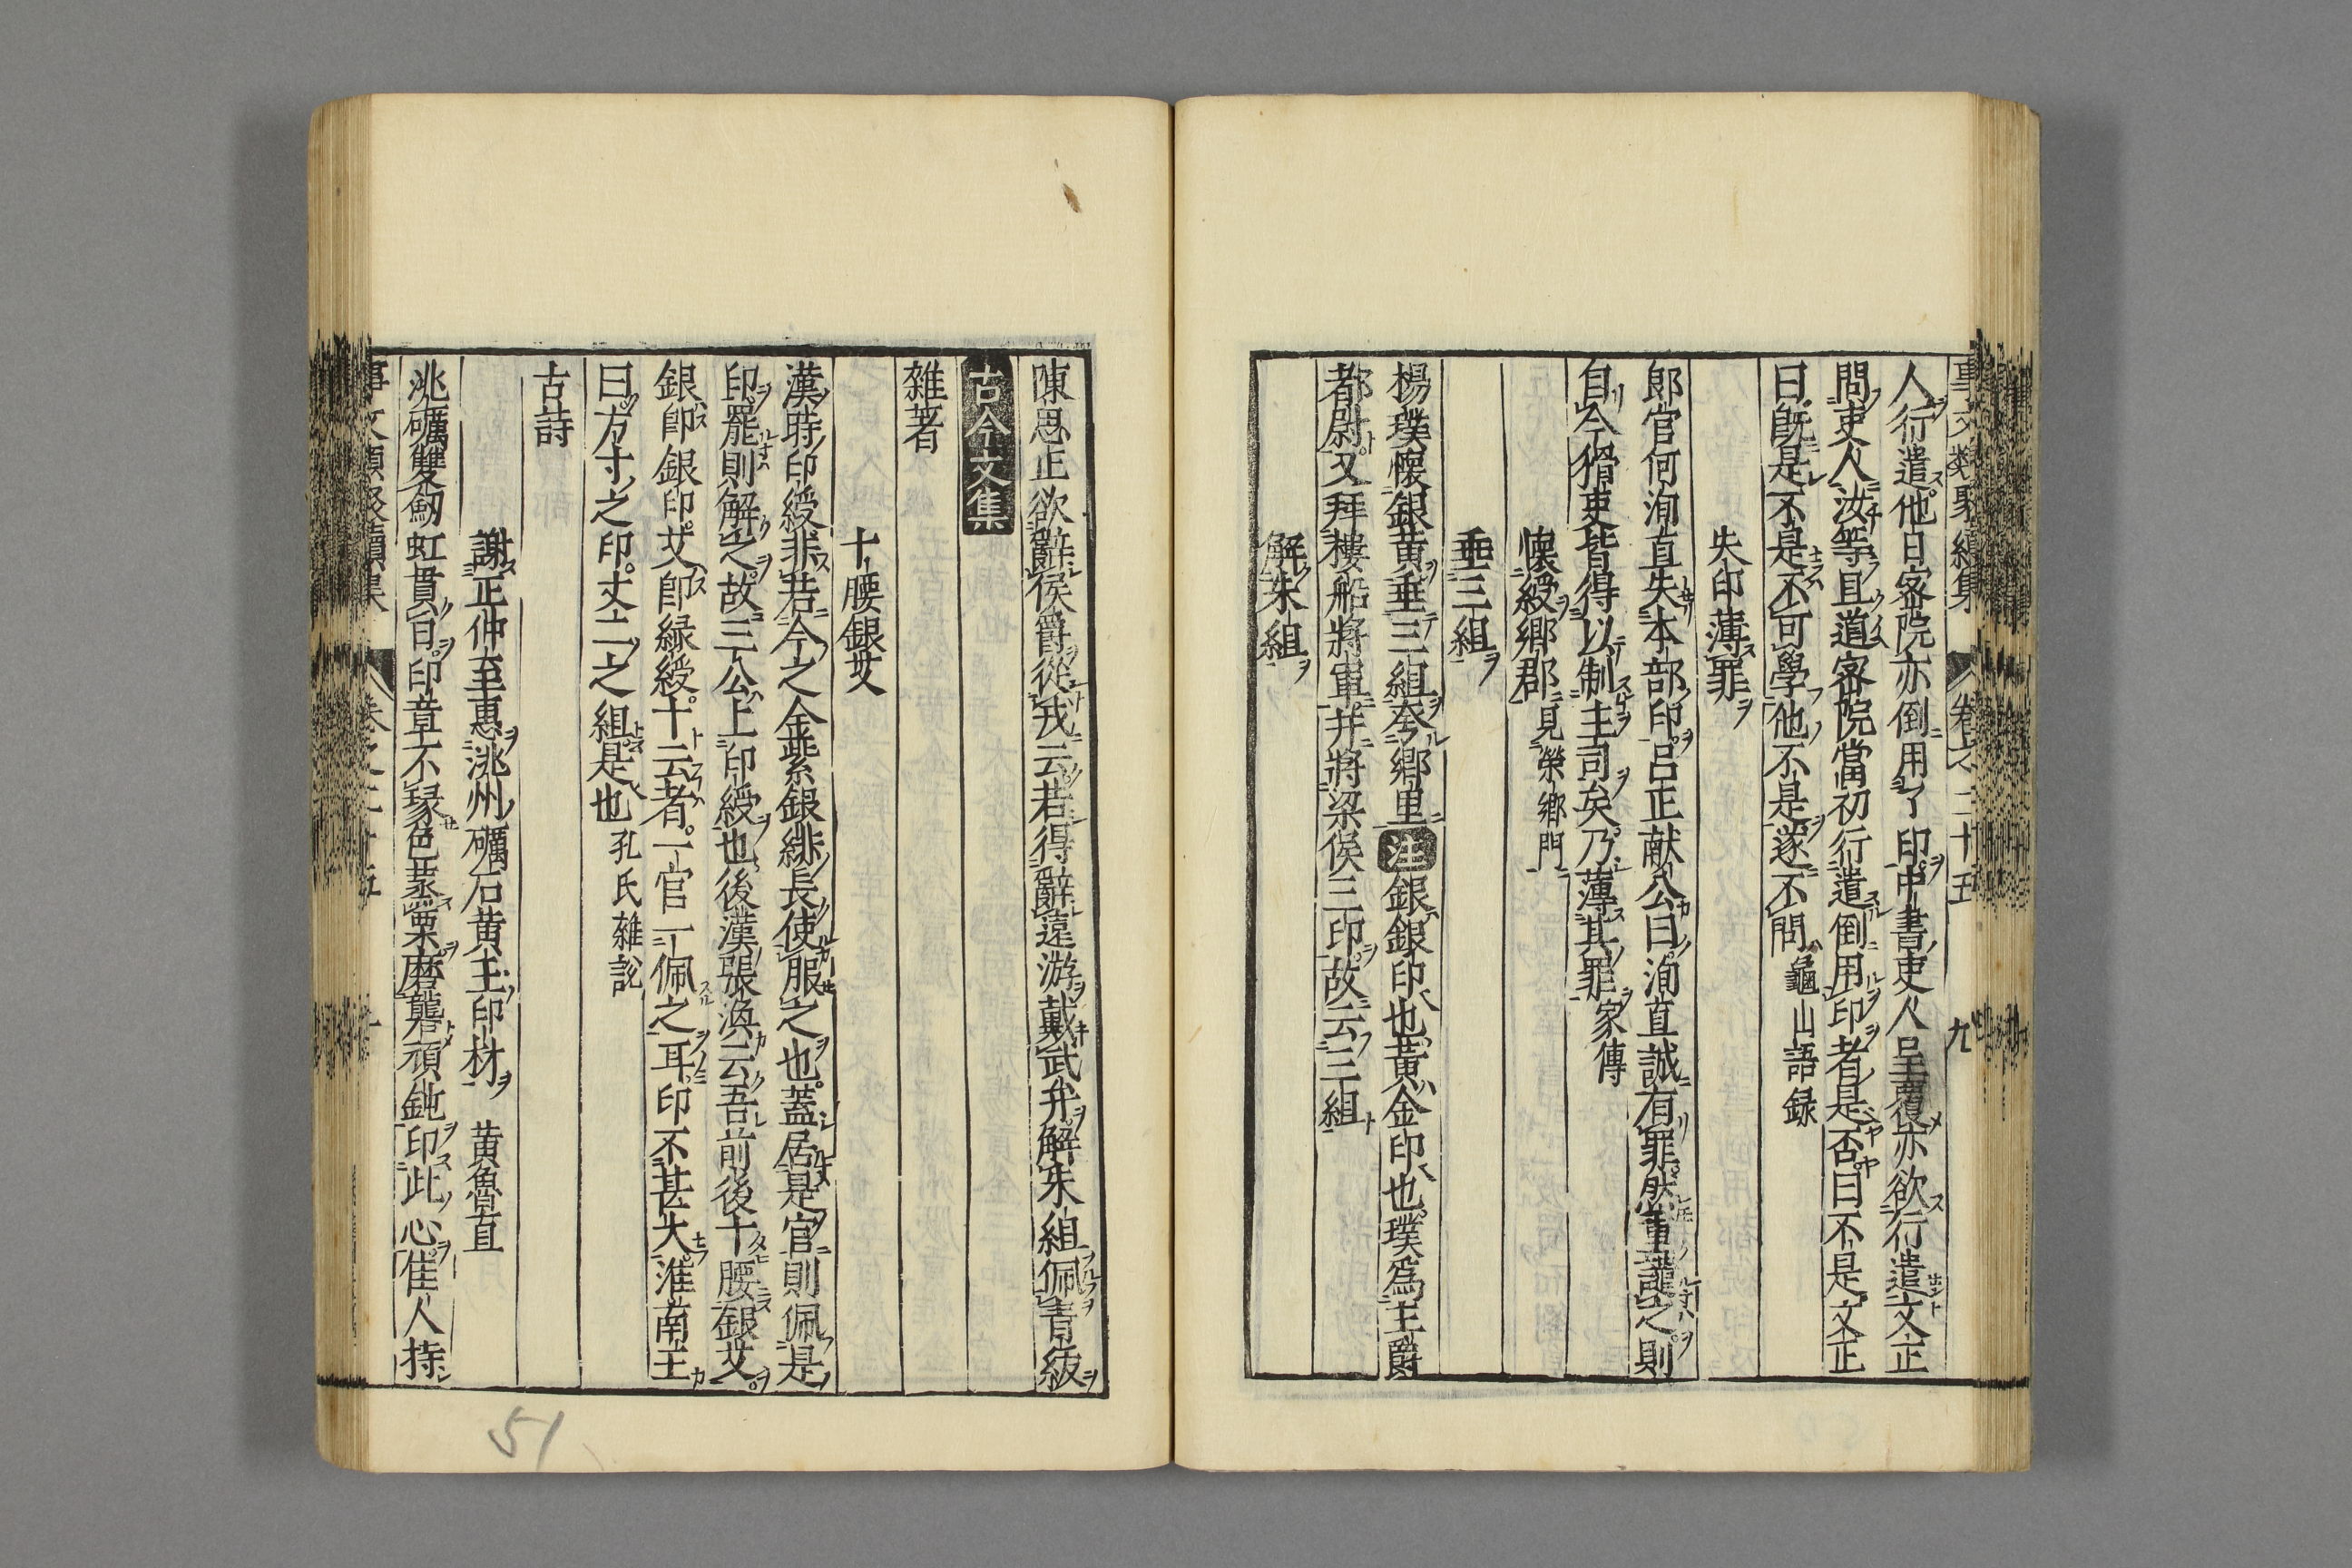 事文類聚續集 卷之二十五 九
人行遣他日密院亦倒用了印中書吏人呈覆亦欲行遣文正
問吏人汝等且道密院當初行遣倒用印者是否曰不是文正
曰旣是不是不可學他不是遂不問龜山語録
失印薄罪
郞官何洵直失本部印呂正献公曰洵直誠有罪然重譴之則
自今猾吏皆得以制主司矣乃薄其罪家傳
懷綬鄉郡見榮鄉門
垂三組
楊璞懷銀黄垂三組夸鄉里注銀銀印也黃金印也璞爲主爵
都尉又拜樓船將軍并將梁侯三印故云三組
解朱組
陳思王欲辭侯爵從戎云若得辭遠游戴武弁解朱組佩青紱
古今文集
雜著
十腰銀艾
漢時印綬非若今之金紫銀緋長使服之也蓋居是官則佩是
印罷則解之故三公上印綬也後漢張渙云吾前後十腰銀艾
銀卽銀印艾卽緑綬十云者一官一佩之耳印不甚大淮南王
曰方寸之印丈二之組是也孔氏雜說
古詩
謝王仲至惠洮州礪石黄玉印材 黄魯直
洮礪雙劒虹貫日印章不琭色蒸栗磨礱頑鈍印此心崔人持
事文類聚續集 卷之二十五
51